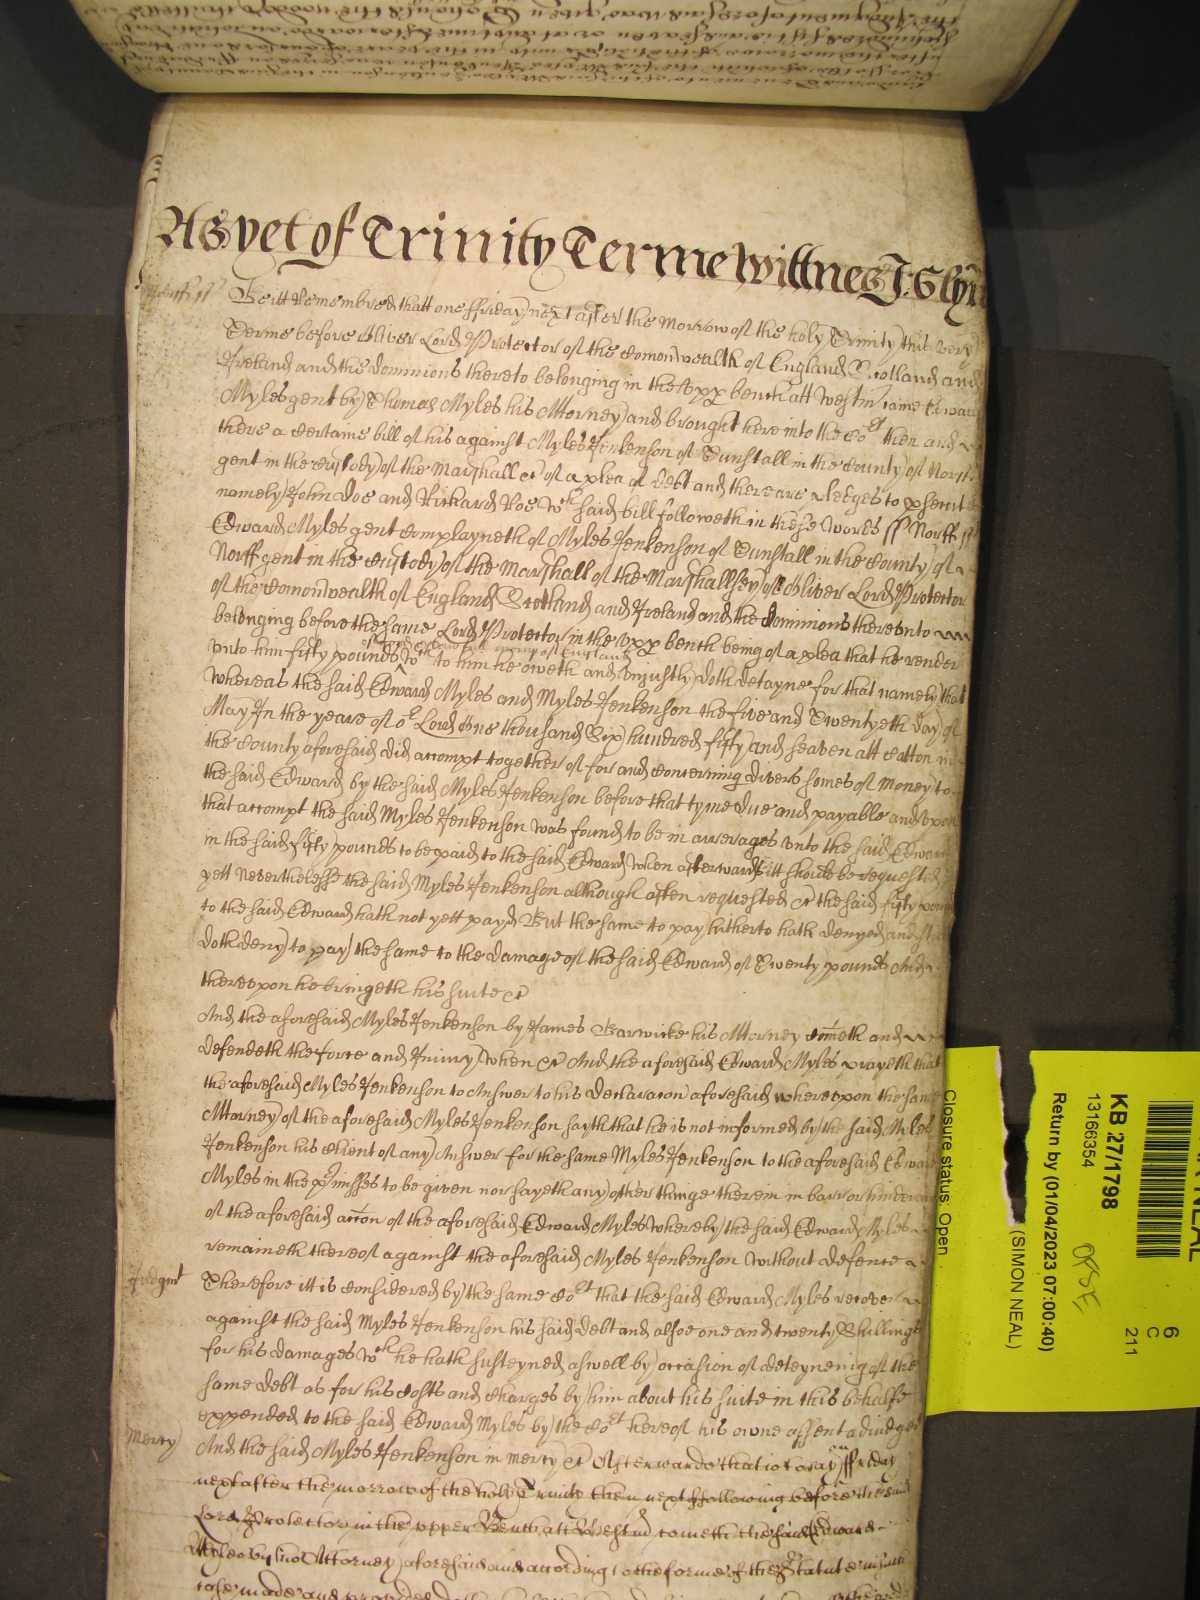 As yet of Trinity Terme Wittnes J. Glyn
Norff ss Be itt Remembred thatt one ffriday next after the Morrow of the holy Trinity this very
Terme before Oliver Lord Protector of the Comonwealth of England Scotland and
Ireland and the Dominions thereto belonging in the Upp bench att Westm came Edward
Myles gent by Thomas Myles his Attorney and brought here into the Cot then and
there a Certaine bill of his against Myles Jenkenson of Dunstall in the County of Norff
gent in the Custody of the Marshall &c of a plea of Debt and there are pledges to psecute
namely John Doe and Richard Roe Wch said bill followeth in these words ss Norff ss
Edward Myles gent Complayneth of Myles Jenkenson of Dunstall in the County of
Norff gent in the Custody of the Marshall of the Marshallsey of Oliver Lord Protector
of the Comonwealth of England Scotland and Ireland and the dominions thereunto
belonging before the same Lord Protector in the Upp bench being of a plea that he render
of good & lawfull money of England
unto him fifty pounds Wch to him he oweth and uniustly doth detayne for that namely that
whereas the said Edward Myles and Myles Jenkenson the five and Twentyeth day of
May In the yeare of or Lord One thousand Six hundred fifty and seaven att Catton in
the County aforesaid did accompt together of for and Concerning divers somes of Money to
the said Edward by the said Myles Jenkenson before that tyme due and payable and upon
that accompt the said Myles Jenkenson was found to be in arrerages unto the said Edward
in the said fifty pounds to be paid to the said Edward when afterwards itt should be requested
yett Neverthelesse the said Myles Jenkenson although often requested &c the said fifty pounds
to the said Edward hath not yett payd But the same to pay hitherto hath denyed and still
doth deny to pay the same to the damage of the said Edward of Twenty pounds And
thereupon he bringeth his suite &c
And the aforesaid Myles Jenkenson by James Barwicke his Attorney Cometh and
defendeth the force and Iniury when &c And the aforesaid Edward Myles prayeth that
the aforesaid Myles Jenkenson to Answer to his Declaracon aforesaid whereupon the same
Attorney of the aforesaid Myles Jenkenson sayth that he is not informed by the said Myles
Jenkenson his Client of any Answer for the same Myles Jenkenson to the aforesaid Edward
Myles in the pmisses to be given nor sayeth any other thinge therein in barr or hinderance
of the aforesaid accon of the aforesaid Edward Myles whereby the said Edward Myles
remaineth thereof against the aforesaid Myles Jenkenson without defence
Judgmt Therefore itt is Considered by the same Cot that the said Edward Myles recover
against the said Myles Jenkenson his said debt and alsoe one and twenty Shillings
for his damages Wch he hath susteyned aswell by occasion of deteynenig of the
same debt as for his Costs and Charges by him about his suite in this behalfe
expended to the said Edward Myles by the Cot hereof his owne assent adiudged
Mercy And the said Myles Jenkenson in mercy &c Afterwards that is to say ffriday
next after the morrow of the holy Trinity then next ffollowing before the said
Lord Protector in the upper Bench att Westm cometh the said Edward
Myles by his Attorney aforesaid and according to the forme of the Statute in such
case made and provided
KB 27/1798
13166354
Return by (01/04/2023 07:00:40)
(SIMON NEAL)
Closure status: Open
6
C
211